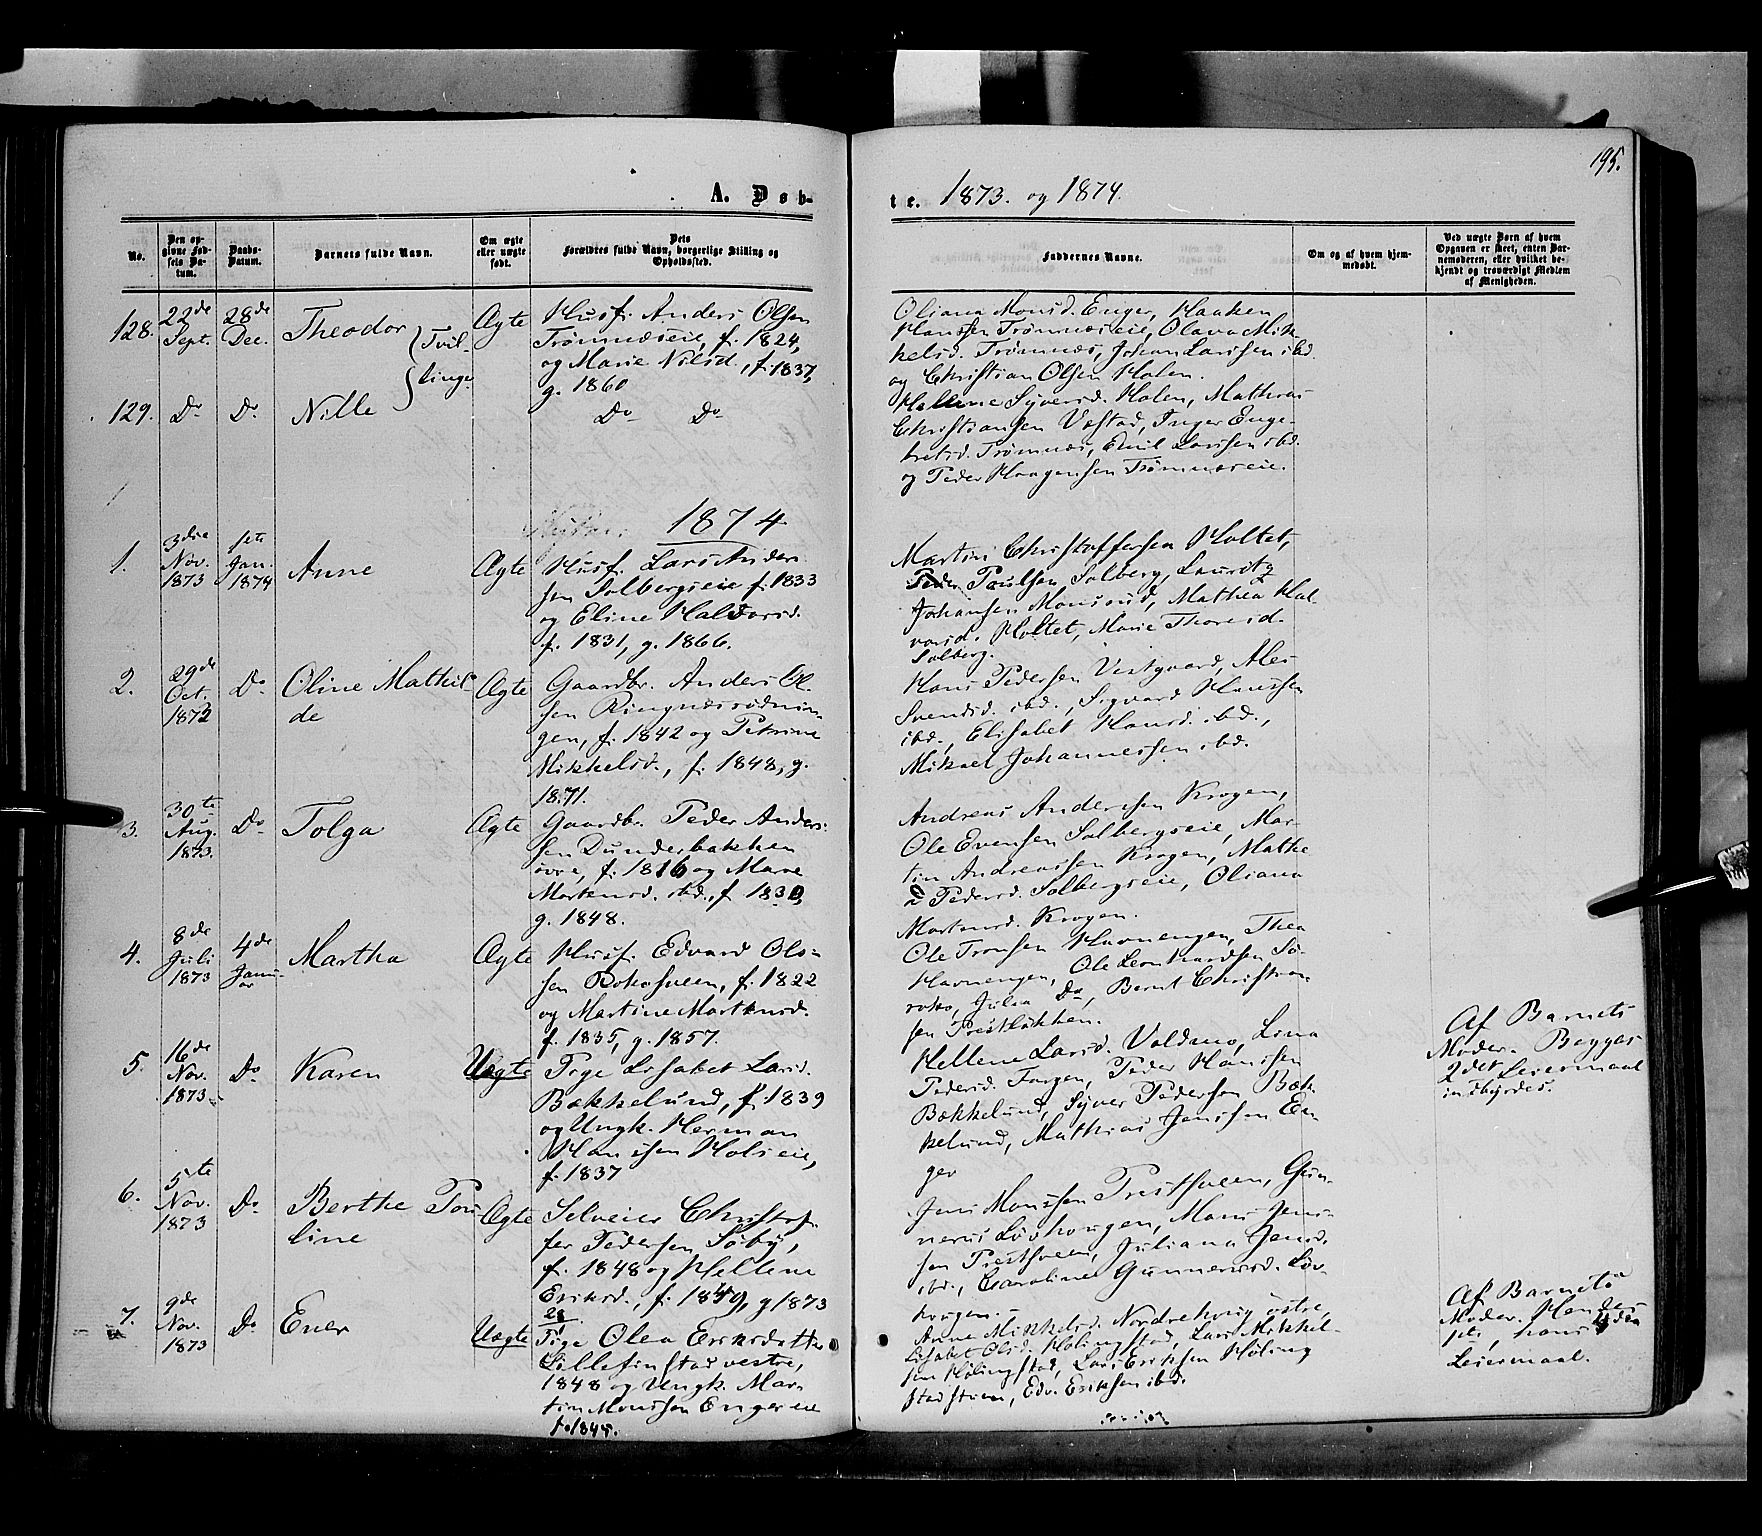 195.
A. Døb-
te. 1873. og 1874.
No.
Den op-
givne Fød-
sels Da-
tum.
Daabs-
Datum.
Barnets fulde Navn.
Om ægte
eller uægte
født.
Dets
Forældres fulde Navn, borgerlige Stilling og
Opholdssted.
Faddernes Navne.
Om og af hvem hjem-
medøbt.
Ved uægte Børn af hvem
Opgaven er skeet, enten Bar-
nemoderen, eller hvilket be-
kjendt og troværdigt Medlem
af Menigheden.
128.
22de
Sept.
28de
Dec.
Theodor
Tvil-
linge
Ægte
Husf. Anders Olsen
Trømnæseie, f. 1824,
og Marie Nilsd., f. 1837,
g. 1860
Oliana Monsd. Enger, Haaken
Hanssen Trømnæseie, Olava Mik-
kelsd. Trømnæs, Johan Larssen ibd.
og Christian Olsen Holen.
129.
Do
Do
Nille
Do Do
Hellene Syversd. Holen, Mathias
Christiansen Vastad, Inger Enge-
bretsd. Trømnæs, Emil Larssen ibd.
og Peder Haagensen Trømnæseie.
1874
1.
3die
Nov.
1873
1ste
Jan.
1874
Anne
Ægte
Husf. Lars Anders-
sen Solbergseie f. 1833
og Eline Halvorsd.
f. 1831, g. 1866.
Martin Christoffersen Holtet,
Peder Paulsen Solberg, Lauritz
Johansen Monsrud, Mathea Hal-
vorsd. Holtet, Marie Thoresd.
Solberg.
2.
29de
Oct.
1873
Do
Oline Mathil-
de
Ægte
Gaardbr. Anders Ol-
sen Ringnæsrødnin-
gen, f. 1842 og Petrine
Mikkelsd., f. 1848, g.
1871.
Hans Pedersen Vestgaard, Ales
Svendsd. ibd., Sigvard Hanssen
ibd., Elisabet Hansd. ibd.,
Mikael Johannessen ibd.
3.
30te
Aug.
1873.
Do
Tolga
Ægte
Gaardbr. Peder Anders-
sen Dunderbakken
øvre, f. 1816 og Mare
Mortensd. ibd., f. 1830,
g. 1848.
Andreas Anderssen Krogen,
Ole Evensen Solbergseie, Mar-
tin Andreassen Krogen, Mathe
a Pedersd. Solbergseie, Oliana
Mortensd. Krogen.
4.
8de
Juli
1873
4de
Janu-
ar
Martha
Ægte
Husf. Edvard Ols-
sen Rokosveen, f. 1822
og Martine Mortensd.
f. 1835, g. 1857.
Ole Tronsen Havnengen, Thea
Havnengen, Ole Leonhardsen Sø-
roko, Julia Do, Bernt Christian-
sen Prestløkken.
5.
16de
Nov.
1873
Do
Karen
Uægte
Pige Lisabet Larsd.
Bækkelund, f. 1839
og Ungk. Herman
Hanssen Holseie,
f. 1837
Hellene Larsd. Voldmo, Lina
Pedersd. Torgen, Peder Hanssen
Bækkelund, Syver Pedersen Bæk-
kelund, Mathias Jenssen En-
ger
Af Barnets
Moder. Begges
2det Leiermaal
indbyrdes.
6.
5te
Nov.
1873
Do
Berthe Pou
line
Ægte
Selveier Christof-
fer Pedersen Søby,
f. 1848 og Hellene
Eriksd., f. 1849, g 1873
Jens Monssen Prestsveen, Gun-
nerus Løvhougen, Mons Jens-
sen Prestsveen, Juliana Jensd.
ibd., Caroline Gunnerusd. Løv-
hougen.
7.
9de
Nov.
1873
Do
Ener
Uægte
Pige Olea Eriksdatter
Lillefinstad vestre,
1848 og Ungk. Mar-
tin Monssen Engereie
f. 1845.
Anne Mikkelsd. Nordrehoug østre,
Lisabet Olsd. Hølingstad, Lars Mikkel-
sen Hølingstad, Lars Eriksen Høling
stadstuen, Edv. Eriksen ibd.
Af Barnets
Moder. Hendes
1ste, hans 4de
Leiermaal.